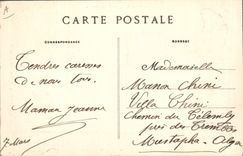 CARTE POSTALE
CORRESPONDANCE
ADRESSE
Tendres caresses
de nous tous.
Maman Jeanne
7 Mars
Mademoiselle
Manon Chini
Villa Chini
Chemin du Telemly
près des
Mustapha - Alger